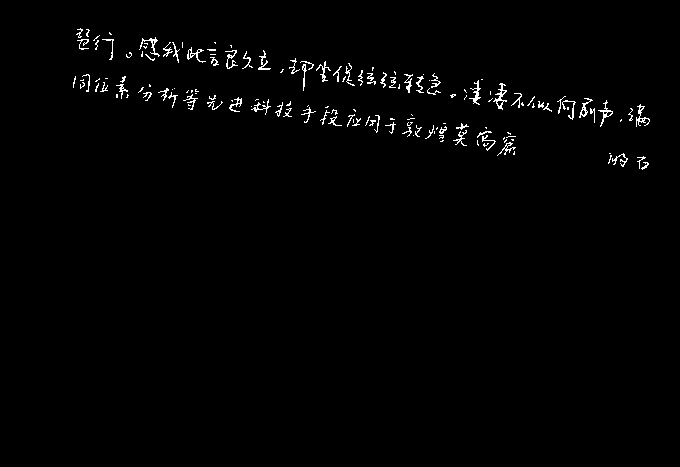 琶行。感我此言良久立，却坐促弦弦转急。凄凄不似向前声，满
同位素分析等先进科技手段应用于敦煌莫高窟 的百